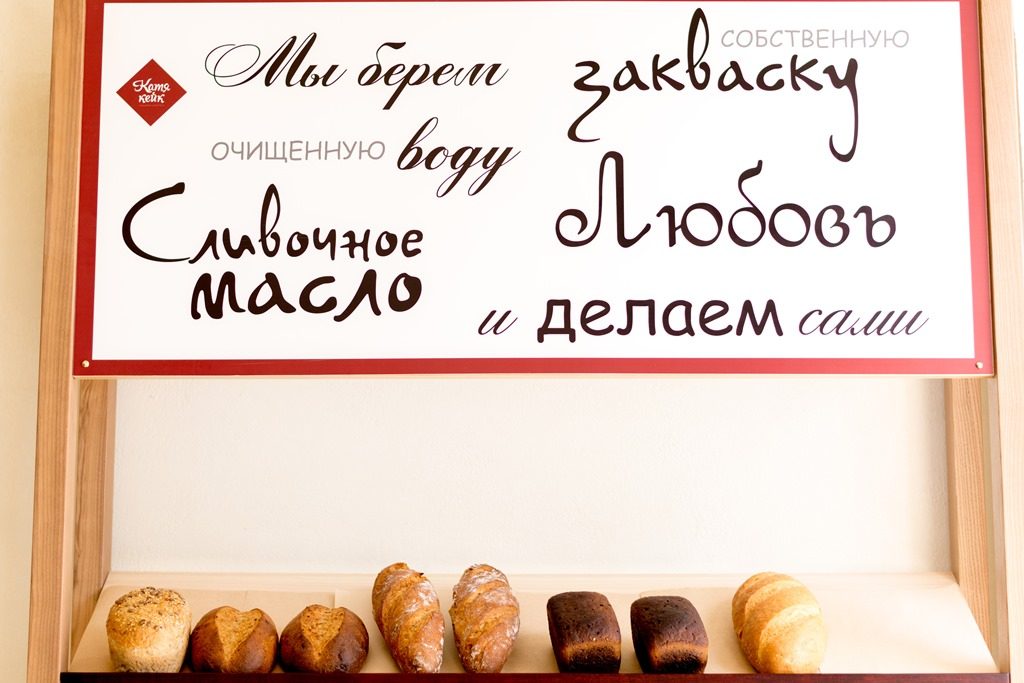 Катя
кейк
Мы берем
очищенную воду
Сливочное
масло
собственную
закваску
Любовь
и делаем сами